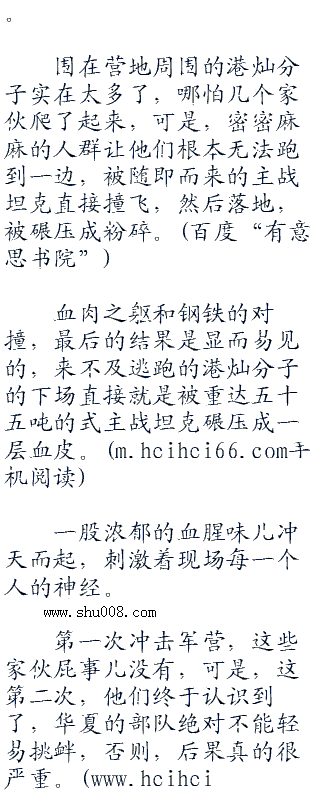 。
围在营地周围的港灿分
子实在太多了，哪怕几个家
伙爬了起来，可是，密密麻
麻的人群让他们根本无法跑
到一边，被随即而来的主战
坦克直接撞飞，然后落地，
被碾压成粉碎。(百度“有意
思书院”)
血肉之躯和钢铁的对
撞，最后的结果是显而易见
的，来不及逃跑的港灿分子
的下场直接就是被重达五十
五吨的式主战坦克碾压成一
层血皮。(m.hcihci66.com手
机阅读)
一股浓郁的血腥味儿冲
天而起，刺激着现场每一个
人的神经。
www.shu008.com
第一次冲击军营，这些
家伙屁事儿没有，可是，这
第二次，他们终于认识到
了，华夏的部队绝对不能轻
易挑衅，否则，后果真的很
严重。(www.hcihci